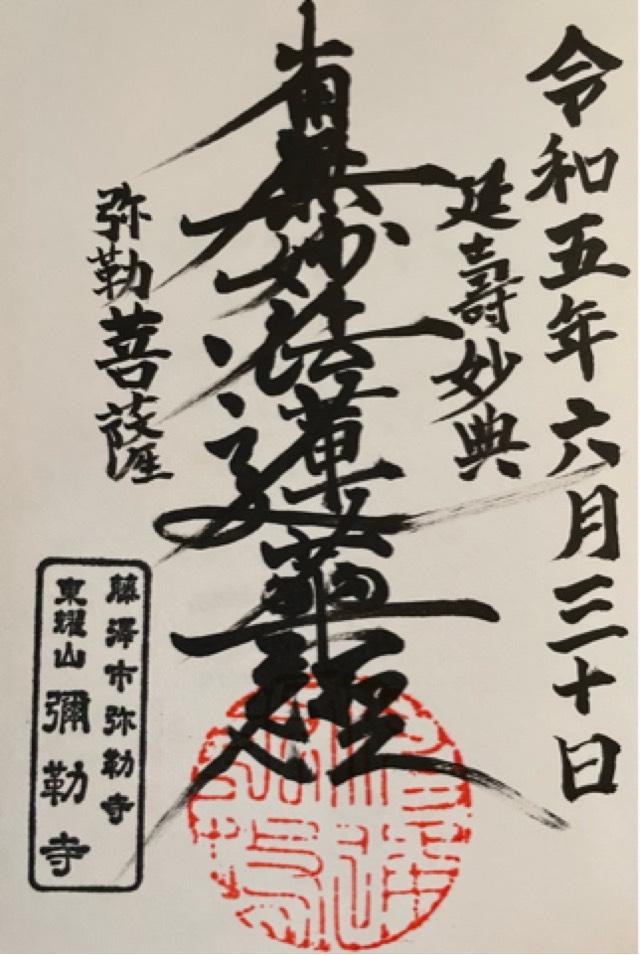 令和五年六月三十日
延壽妙典
南無妙法蓮華経
弥勒菩薩
藤澤市弥勒寺
東耀山 彌勒寺